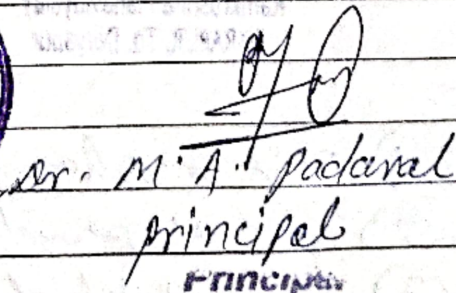 Dr. M. A. Padaval
principal
Principal